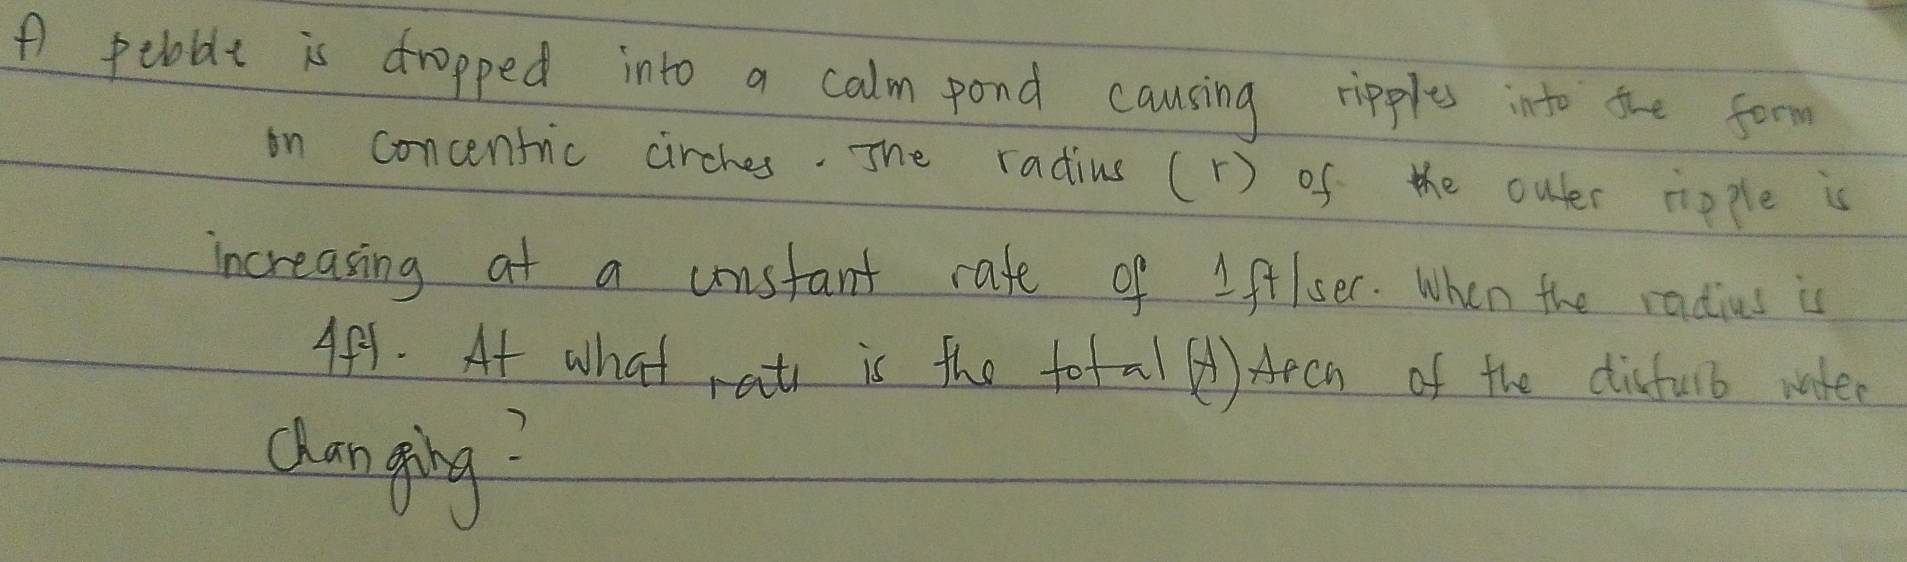 A pebble is dropped into a calm pond causing ripples into the form
on concentric cirches. The radius (r) of the outer ripple is
increasing at a constant rate of 1ft/sec. When the radius is
4ft. At what rate is the total (A) Area of the disturb water
changing?